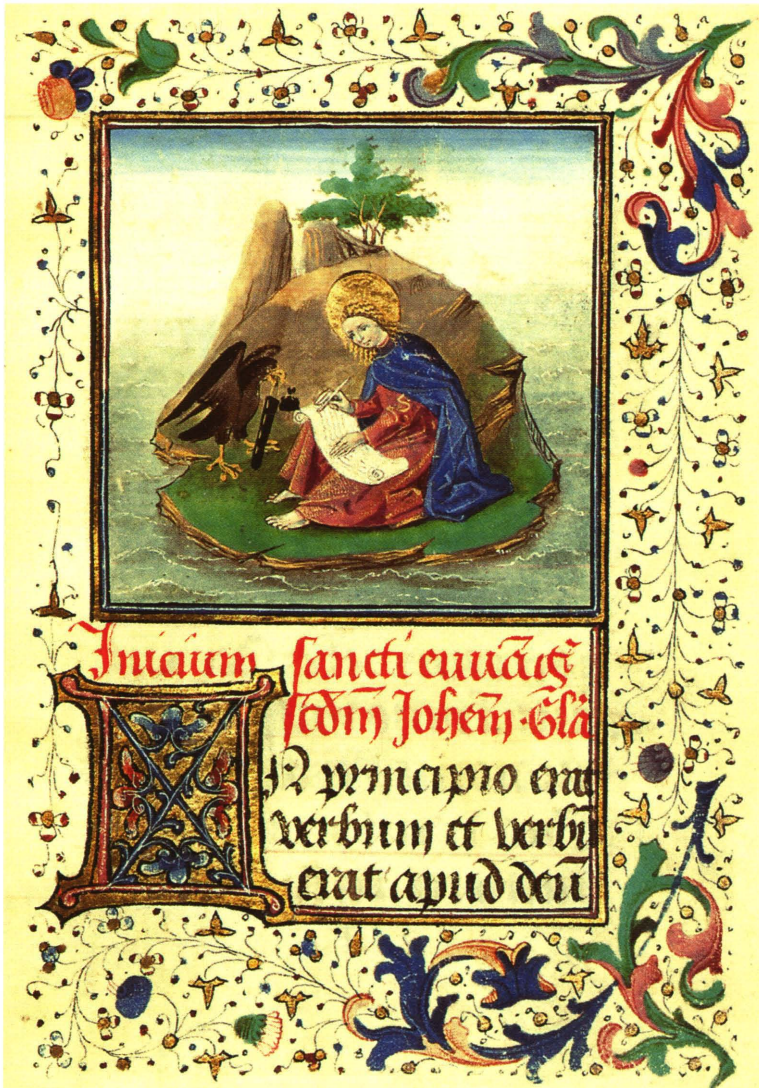 Inicium sancti euuāgẽ
scdm̄ Johem̄ · Glā
IN principio erat
verbum et verbū
erat apud deū